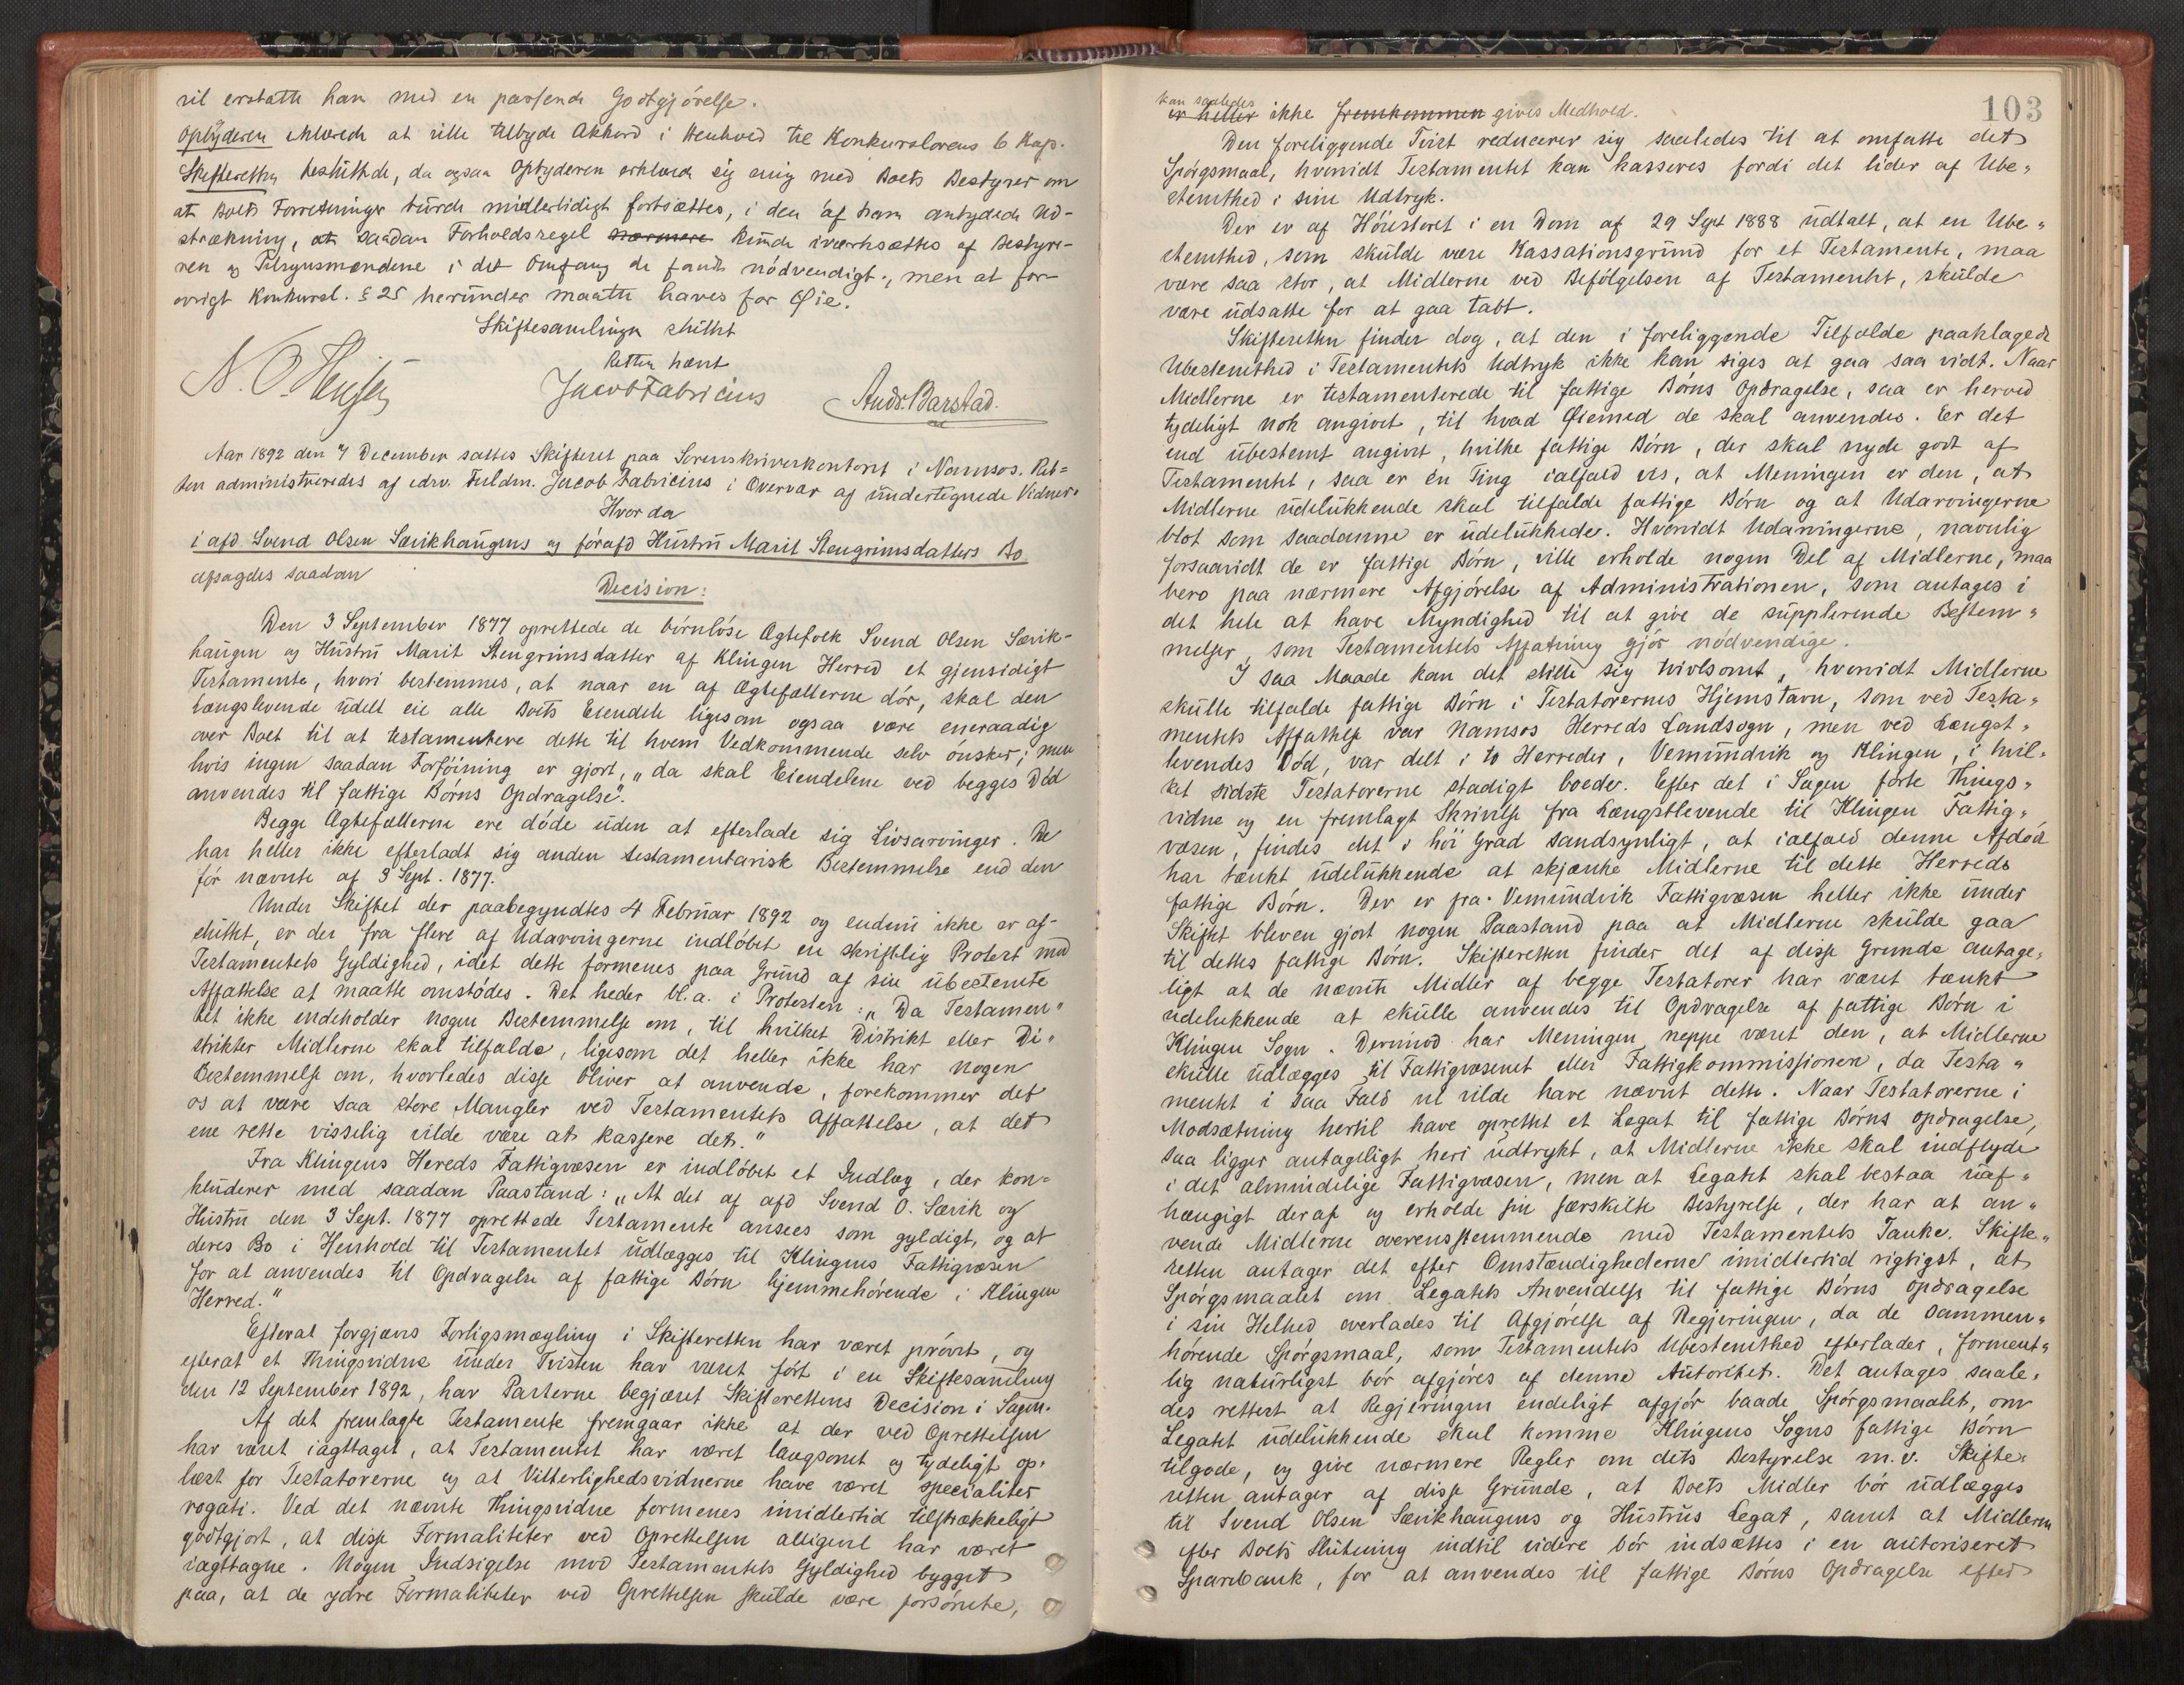 vil erstatte ham med en passende Godtgjörelse.
Opbyderen erklærede at ville tilbyde Akkord i Henhold til Konkurslovens 6 Kap.
Skifteretten besluttede, da ogsaa Opbyderen erklærede sig enig med Boets Bestyrer om
at Boets Forretninger burde midlertidigt fortsættes, i den af ham antydede Ud-
strækning, at saadan Forholdsregel nærmere kunde iværksættes af Bestyre-
ren og Tilsynsmændene i det Omfang de fandt nödvendigt, men at for-
övrigt Konkursl. § 25 herunder maatte haves for Öie.
Skiftesamlingen sluttet
Retten hævet
Jacob Fabricius Andr. Barstad.
Aar 1892 den 7 December sattes Skifteret paa Sorenskriverkontoret i Namsos. Ret=
ten administreredes af edsv. Fuldm. Jacob Fabricius i Overvær af undertegnede Vidner.
Hvorda
i afd. Svend Olsen Sævikhaugens og föravd Hustru Marit Stengrimsdatters Bo
afsagdes saadan
Decision:
Den 3 September 1877 oprettede de börnlöse Ægtefolk Svend Olsen Sævik-
haugen og Hustru Marit Stengrimsdatter af Klingen Herred et gjensidigt
Testamente, hvori bestemmes, at naar en af Ægtefællerne dör, skal den
Længstlevende udelt eie alle Boets Eiendele ligesom ogsaa være eneraadig
over Boet til at testamentere dette til hvem Vedkommende selv önsker; men
hvis ingen saadan Forföining er gjort, „da skal Eiendelene ved begges Död
anvendes til fattige Börns Opdragelse".
Begge Ægtefællerne ere döde uden at efterlade sig Livsarvinger. De
har heller ikke efterladt sig anden testamentarisk Bestemmelse end den
för nævnte af 3 Sept. 1877.
Under Skiftet der paabegyndtes 4 Februar 1892 og endnu ikke er af-
sluttet, er der fra flere af Udarvingerne indlöbet en skriftlig Protest mod
Testamentets Gyldighed, idet dette formenes paa Grund af sin ubestemte
Affattelse at maatte omstödes. Det heder bl.a. i Protesten: „Da Testamen"
tet ikke indeholder nogen Bestemmelse om, til hvilket Distrikt eller Di"
strikter Midlerne skal tilfalde, ligesom det heller ikke har nogen
Bestemmelse om, hvorledes disse bliver at anvende, forekommer det
os at være saa store Mangler ved Testamentets Affattelse, at det
ene rette visselig vilde være at kassere det."
Fra Klingens Hereds Fattigvæsen er indlöbet et Indlæg, der kon=
kluderer med saadan Paastand: „At det af afd Svend O. Sævik og
Hustru den 3 Sept. 1877 oprettede Testamente ansees som gyldigt, og at
deres Bo i Henhold til Testamentet udlægges til Klingens Fattigvæsen
for at anvendes til Opdragelse af fattige Börn hjemmehörende i Klingen
Herred."
Efterat forgjæves Forligsmægling i Skifteretten har været prövet, og
efterat et Thingsvidne under Tvisten har været fört i en Skiftesamling
den 12 September 1892, har Parterne begjæret Skifterettens Decision i Sagen.
Af det fremlagte Testamente fremgaar ikke at der ved Oprettelsen
har været iagttaget, at Testamentet har været langsomt og tydeligt op-
læst for Testatorerne og at Vitterlighedsvidnerne have været specialiter
rogati. Ved det nævnte Thingsvidne formenes imidlertid tilstrækkeligt
godtgjort, at disse Formaliteter ved Oprettelsen alligevel har været
iagttagne. Nogen Indsigelse mod Testamentets Gyldighed bygget
paa, at de ydre Formaliteter ved Oprettelsen skulde være forsömte,
103
kan saaledes
er heller ikke fremkommen gives Medhold.
Den foreliggende Tvist reducerer sig saaledes til at omfatte det
Spörgsmaal, hvorvidt Testamentet kan kasseres fordi det lider af Ube=
stemthed i sine Udtryk.
Der er af Höiesteret i en Dom af 29 Sept 1888 udtalt, at en Ube=
stemthed, som skulde være Kassationsgrund for et Testamente, maa
være saa stor, at Midlerne ved Befölgelsen af Testamentet, skulde
være udsatte for at gaa tabt.
Skifteretten finder dog, at den i foreliggende Tilfælde paaklagede
Ubestemthed i Testamentets Udtryk ikke kan siges at gaa saa vidt. Naar
Midlerne er testamenterede til fattige Börns Opdragelse, saa er herved
tydeligt nok angivet, til hvad Öiemed de skal anvendes. Er det
end ubestemt angivet, hvilke fattige Börn, der skal nyde godt af
Testamentet, saa er én Ting ialfald vis, at Meningen er den, at
Midlerne udelukkende skal tilfalde fattige Börn og at Udarvingerne
blot som saadanne er udelukkede. Hvorvidt Udarvingerne, navnlig
forsaavidt de er fattige Börn, ville erholde nogen Del af Midlerne, maa
bero paa nærmere Afgjörelse af Administrationen, som antages i
det hele at have Myndighed til at give de supplerende Bestem"
melser, som Testamentets Affatning gjör nödvendige.
I saa Maade kan det stille sig tvivlsomt, hvorvidt Midlerne
skulle tilfalde fattige Börn i Testatorernes Hjemstavn, som ved Testa=
mentets Affattelse var Namsos Herreds Landsogn, men ved Længst=
levendes Död, var delt i to Herreder, Vemundvik og Klingen, i hvil=
ket sidste Testatorerne stadigt boede. Efter det i Sagen förte Things=
vidne og en fremlagt Skrivelse fra Længstlevende til Klingen Fattig=
væsen, findes det i höi Grad sandsynligt, at ialfald denne Afdöd
har tænkt udelukkende at skjænke Midlerne til dette Herreds
fattige Börn. Der er fra Vemundvik Fattigvæsen heller ikke under
Skiftet bleven gjort nogen Paastand paa at Midlerne skulde gaa
til dettes fattige Börn. Skifteretten finder det af disse Grunde antage=
ligt at de nævnte Midler af begge Testatorer har været tænkt
udelukkende at skulle anvendes til Opdragelse af fattige Börn i
Klingen Sogn. Derimod har Meningen neppe været den, at Midlerne
skulle udlægges til Fattigvæsenet eller Fattigkommissionen, da Testa"
mentet i saa Fald vel vilde have nævnt dette. Naar Testatorerne i
Modsætning hertil have oprettet et Legat til fattige Börns Opdragelse,
saa ligger antageligt heri udtrykt, at Midlerne ikke skal indflyde
i det almindelige Fattigvæsen, men at Legatet skal bestaa uaf"
hængigt deraf og erholde sin særskilte Bestyrelse, der har at an"
vende Midlerne overensstemmende med Testamentets Tanke. Skifte"
retten antager det efter Omstændighederne imidlertid rigtigst, at
Spörgsmaalet om Legatets Anvendelse til fattige Börns Opdragelse
i sin Helhed overlades til Afgjörelse af Regjeringen, da de sammen"
hörende Spörgsmaal, som Testamentets Ubestemthed efterlader, forment"
lig naturligst bör afgjöres af denne Autoritet. Det antages saale=
des rettest at Regjeringen endeligt afgjör baade Spörgsmaalet, om
Legatet udelukkende skal komme Klingens Sogns fattige Börn
tilgode, og give nærmere Regler om dets Bestyrelse m.v. Skifte=
retten antager af disse Grunde, at Boets Midler bör udlægges
til Svend Olsen Sævikhaugens og Hustrus Legat, samt at Midlerne
efter Boets Slutning indtil videre bör indsættes i en autoriseret
Sparebank, for at anvendes til fattige Börns Opdragelse efter